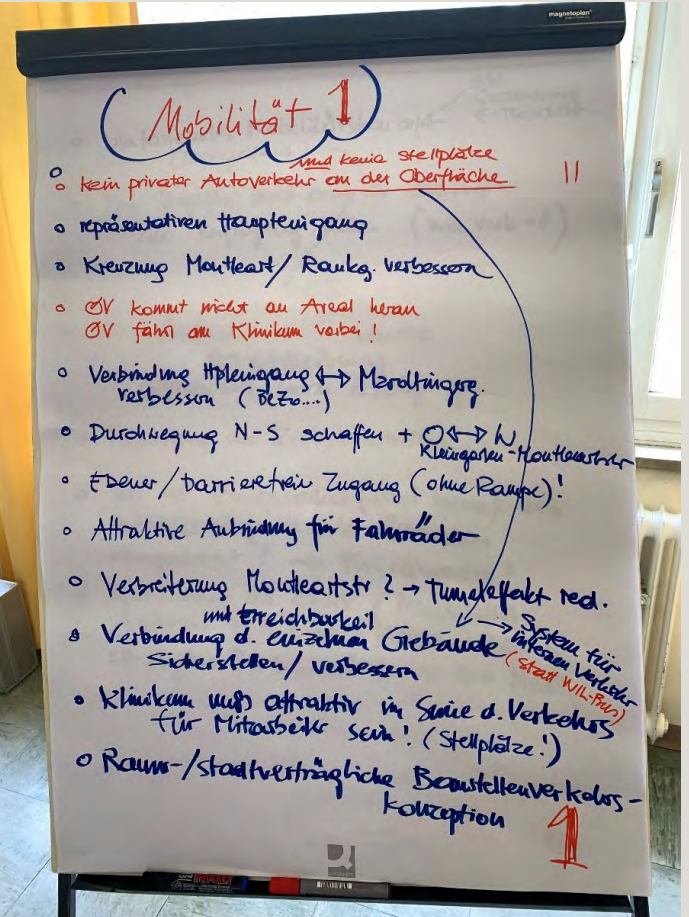 magnetoplan
Mobilität 1
und keine Stellplätze
kein privater Autoverkehr an der Oberfläche II
repräsentativen Haupteingang
Kreuzung Montleart/ Rankg. verbessern
ÖV kommt nicht an Areal heran
ÖV fährt am Klinikum vorbei!
Verbindung Hpteingang ↔ Maroltingerg.
verbessern (BeZo....)
Durchwegung N-S schaffen + O↔W
Kleingarten-Montleartstr
Ebener/barrierefreier Zugang (ohne Rampe)!
Attraktive Anbindung für Fahrräder
Verbreiterung Montleartstr ? → Tunneleffekt red.
mit Erreichbarkeit
Verbindung d. einzelnen Gebände → System für
internen Verkehr
Sicherstellen/ verbessern (statt WIL-Bus)
Klinikum muß attraktiv im Sinne d. Verkehrs
für Mitarbeiter sein! (Stellplätze!)
Raum-/stadtverträgliche Baustellenverkehrs-
konzeption
1